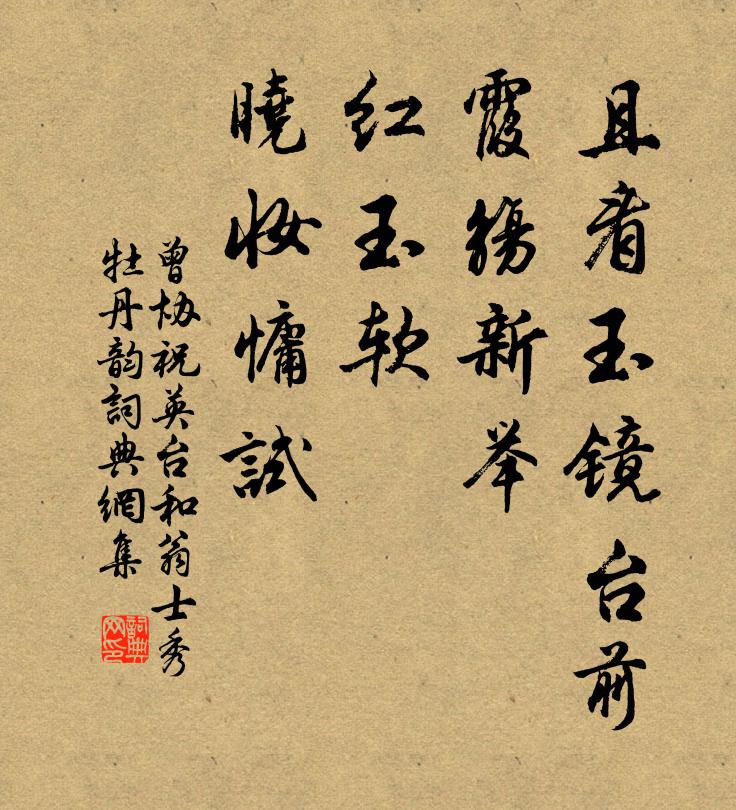 且看玉镜台前
霞觴新举
红玉软
曉妆慵試
曾协祝英台和翁士秀
牡丹韵詞典網集
詞典网印